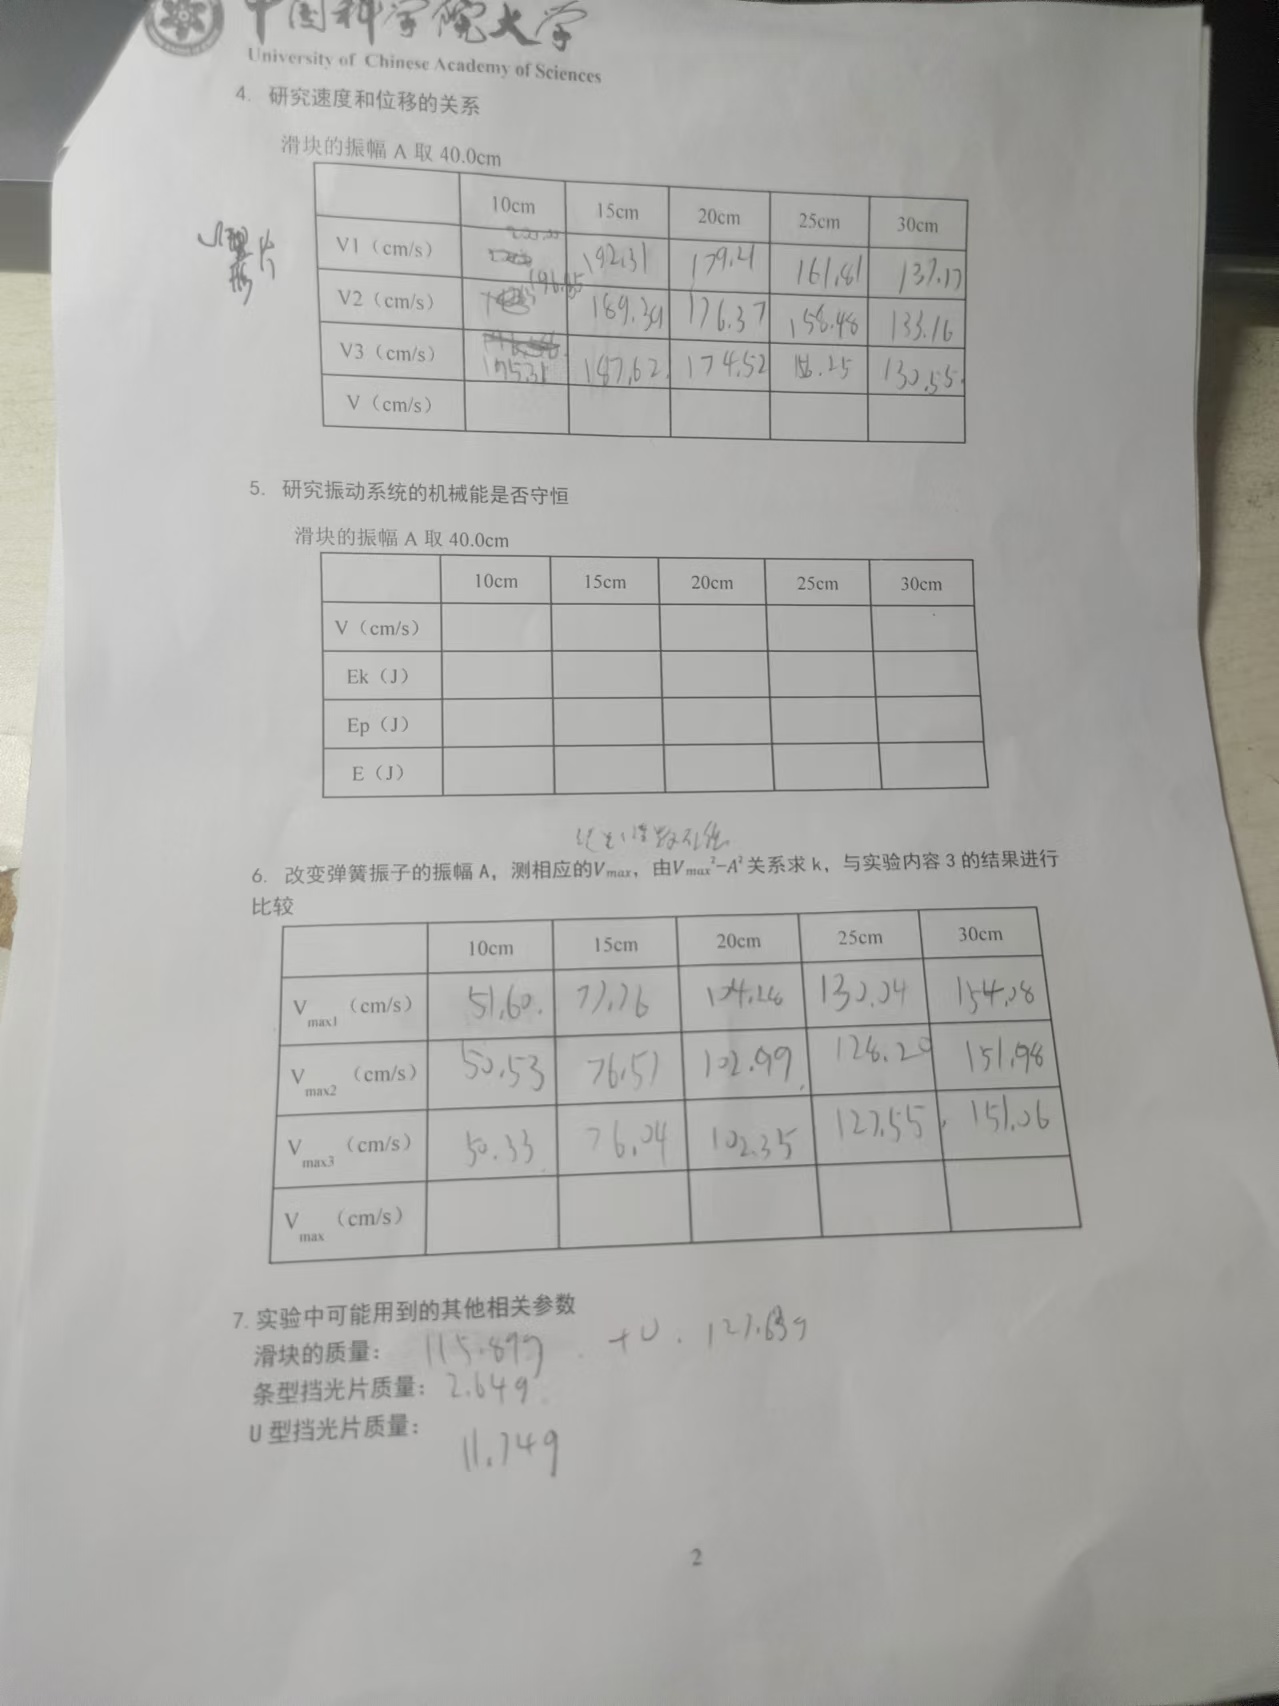 中国科学院大学
University of Chinese Academy of Sciences
4. 研究速度和位移的关系
滑块的振幅 A 取 40.0cm
10cm 15cm 20cm 25cm 30cm
V1（cm/s） 192.31 179.21 161.81 137.17
V2（cm/s） 196.85 189.39 176.37 158.48 133.16
V3（cm/s） 195.31 187.62 174.52 130.55
V（cm/s）
5. 研究振动系统的机械能是否守恒
滑块的振幅 A 取 40.0cm
10cm 15cm 20cm 25cm 30cm
V（cm/s）
Ek（J）
Ep（J）
E（J）
6. 改变弹簧振子的振幅 A，测相应的Vmax，由Vmax²-A²关系求 k，与实验内容 3 的结果进行
比较
10cm 15cm 20cm 25cm 30cm
Vmax1（cm/s） 51.60 77.76 104.28 130.04 154.08
Vmax2（cm/s） 50.53 76.57 102.99 128.20 151.98
Vmax3（cm/s） 50.33 76.04 102.35 127.55 151.06
Vmax（cm/s）
7. 实验中可能用到的其他相关参数
滑块的质量： 115.89g +U. 127.63g
条型挡光片质量：2.64g
U 型挡光片质量：
11.74g
2